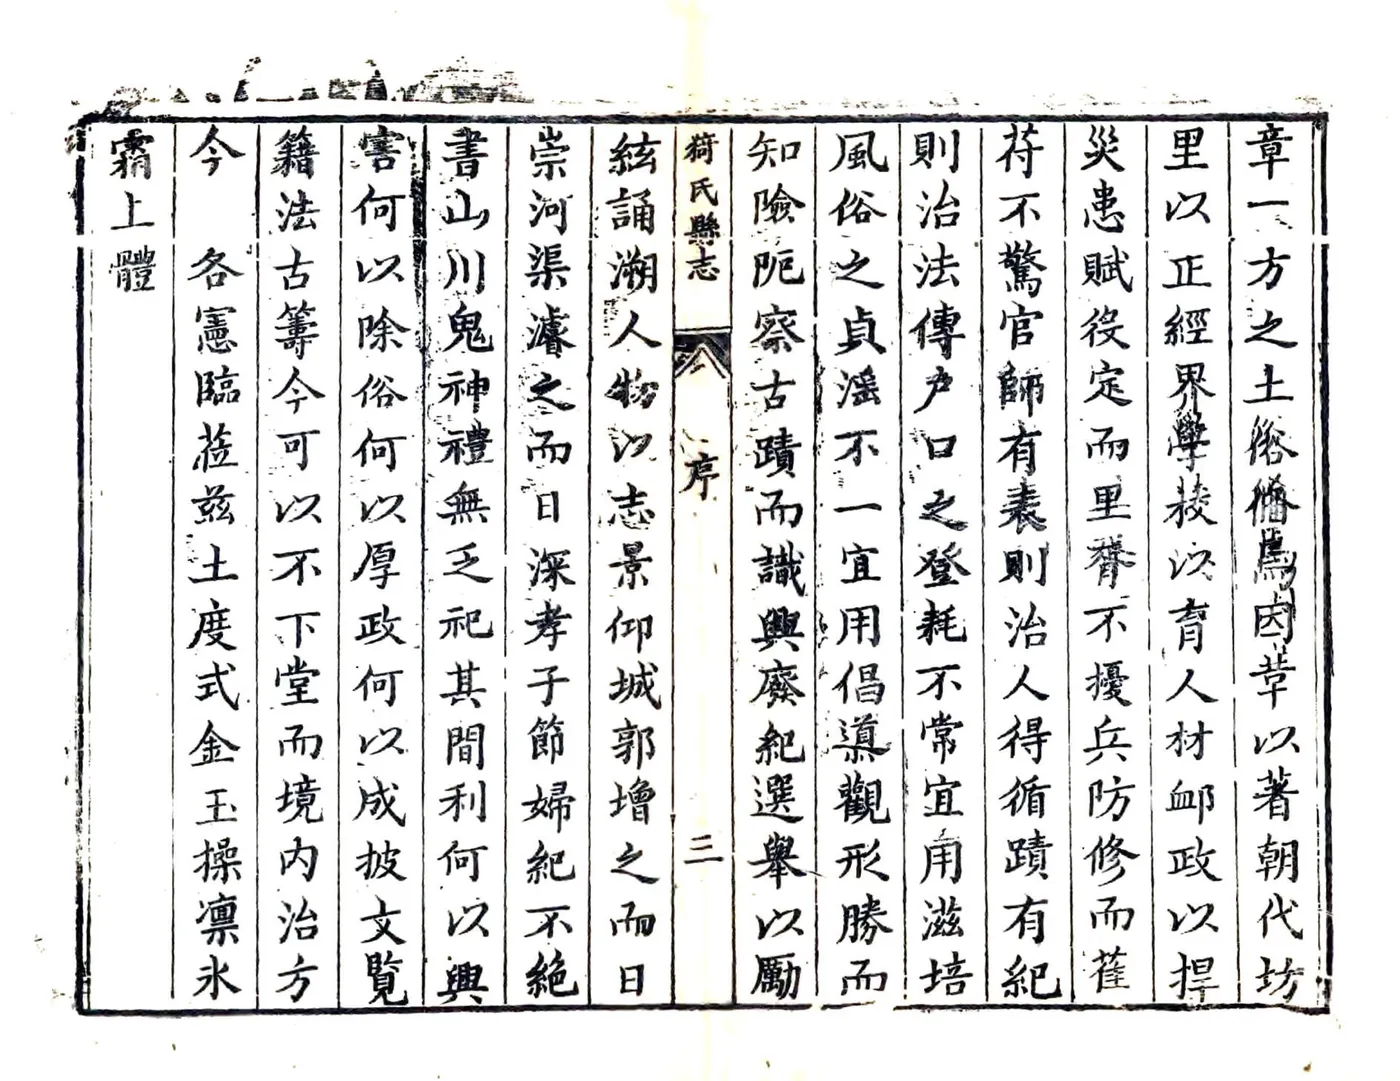 章一方之土俗備焉因革以著朝代坊
里以正經界學校以育人材邮政以捍
災患賦役定而里胥不擾兵防修而萑
苻不驚官師有表則治人得循蹟有紀
則治法傳户口之登耗不常宜用滋培
風俗之貞滛不一宜用倡導觀形勝而
知險阨察古蹟而識興廢紀選舉以勵
猗氏縣志 序 三
絃誦溯人物以志景仰城郭增之而日
崇河渠濬之而日深孝子節婦紀不絶
書山川鬼神禮無乏祀其間利何以興
害何以除俗何以厚政何以成披文覽
籍法古籌今可以不下堂而境内治方
今 各憲臨蒞茲土度式金玉操凛氷
霜上體